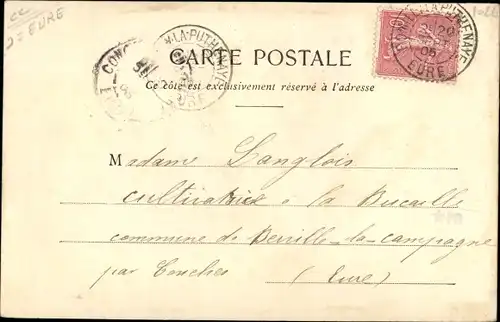 = EURE
CARTE POSTALE
Ce côté est exclusivement réservé à l'adresse
LA-PUTHENAYE
EURE
LA-PUTHENAYE
20
EURE
Madame Langlois
cultivatrice à la Bucaille
commune de Berville-la-campagne
par Conches
(Eure)